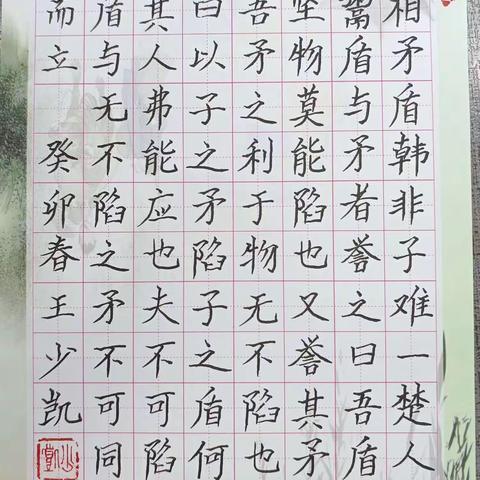 相矛盾韩非子难一楚人
鬻盾与矛者誉之曰吾盾
坚物莫能陷也又誉其矛
吾矛之利于物无不陷也
曰以子之矛陷子之盾何
其人弗能应也夫不可陷
盾与无不陷之矛不可同
而立 癸卯春王少凯